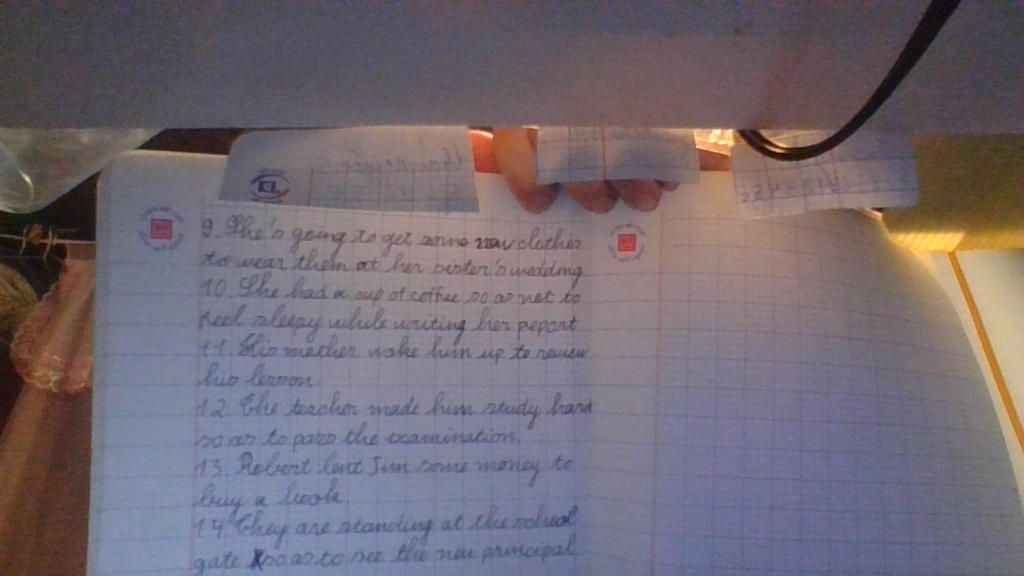 9. She's going to get some new clothes
to wear them at her sister's wedding
10. She had a cup of coffee so as not to
feel sleepy while writing her report
11. His mother wake him up to review
his lesson.
12. The teacher made him study hard
so as to pass the examination.
13. Robert lent Jim some money to
buy a book
14. They are standing at the school
gate so as to see the new principal